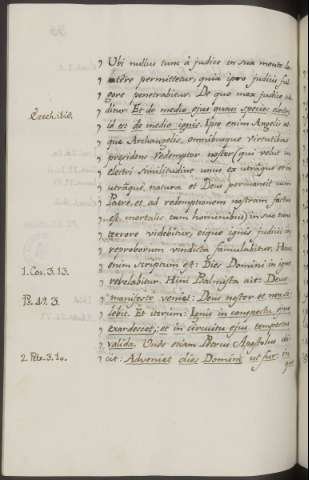 „ Ubi nullus tum à judice in sua mente la-
„ tére permittetur, quia ipso judicii ful
„ gore penetrabitur. De quo mox judice ad
„ ditur. Et de medio ejus quasi species electri,
Ezech. ibid. „ id est de medio ignis. Ipse enim Angelis at
„ que Archangelis, omnibusque virtutibus
„ præsidens Redemptor noster (qui velut in
„ electri similitudine unus ex utraque et in
„ utraque natura et Deus permanet cum
„ Patre, et ad redemptionem nostram factus
„ est mortalis cum hominibus) in suo tunc
„ terrore videbitur, eique ignis judicii in
„ reproborum vindicta famulabitur. Hinc
„ enim scriptum est: Dies Domini in igne
1. Cor. 3. 13. „ revelabitur. Hinc Psalmista ait: Deus
Ps. 49. 3. „ manifeste veniet: Deus noster et non si-
„ lebit. Et iterum: Ignis in conspectu ejus
„ exardescet, et in circuitu ejus tempestas
„ valida. Unde etiam Petrus Apostolus di
2. Petr. 3. 10. „ cit: Adveniet dies Domini ut fur, in
quo